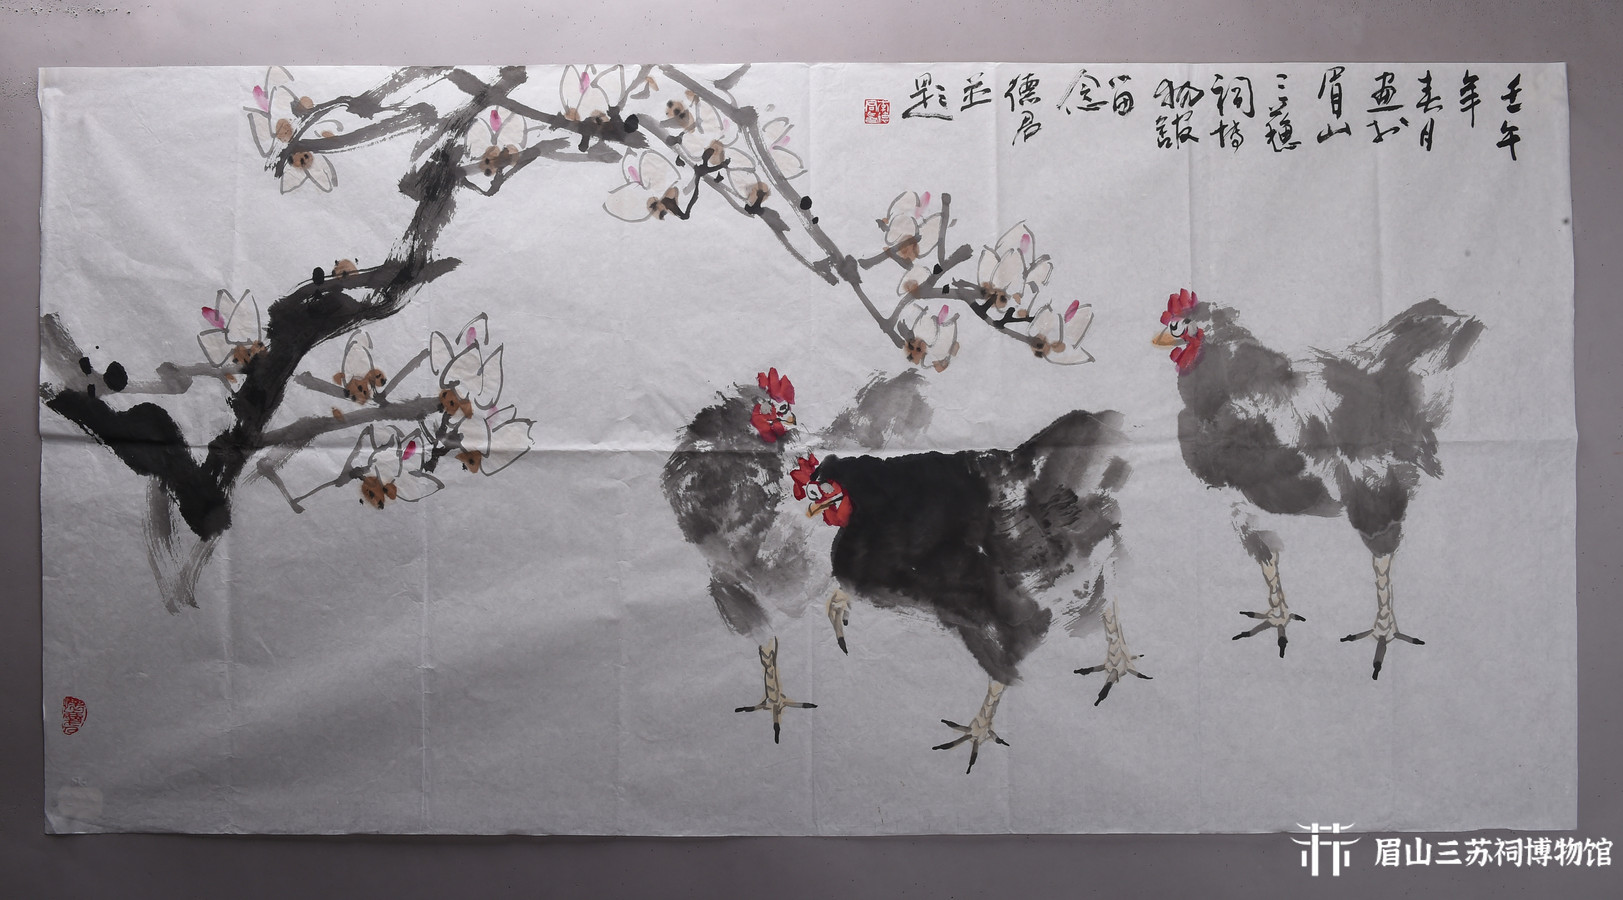 壬午
年
春月
画于
眉山
三苏
祠博
物馆
留
念
德君
并
题
眉山三苏祠博物馆